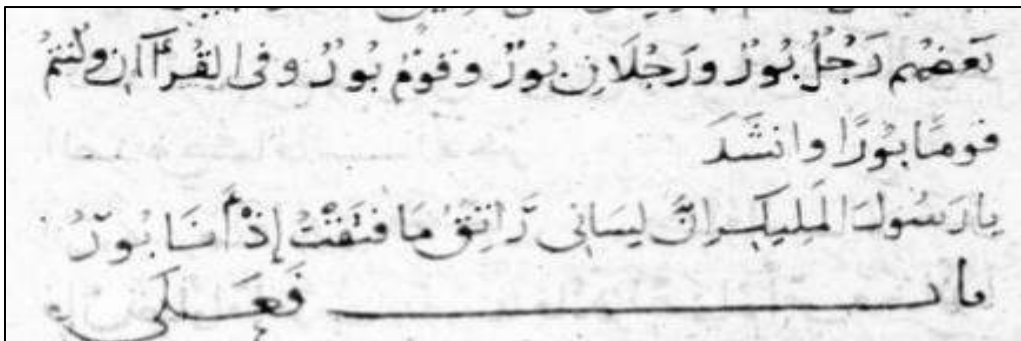 بَعضُهم رَجُلٌ بُورٌ ورَجُلَانِ بُورٌ وقَوْمٌ بُورٌ وفى القُرْآن وكنتم
قومًا بُورًا وانشَدَ
يا رَسُولَ المَلِيكِ إنَّ لِسَانِى رَاتِقٌ مَا فَتَقْتُ إذْ أنَا بُورُ
باب فَعَلَى